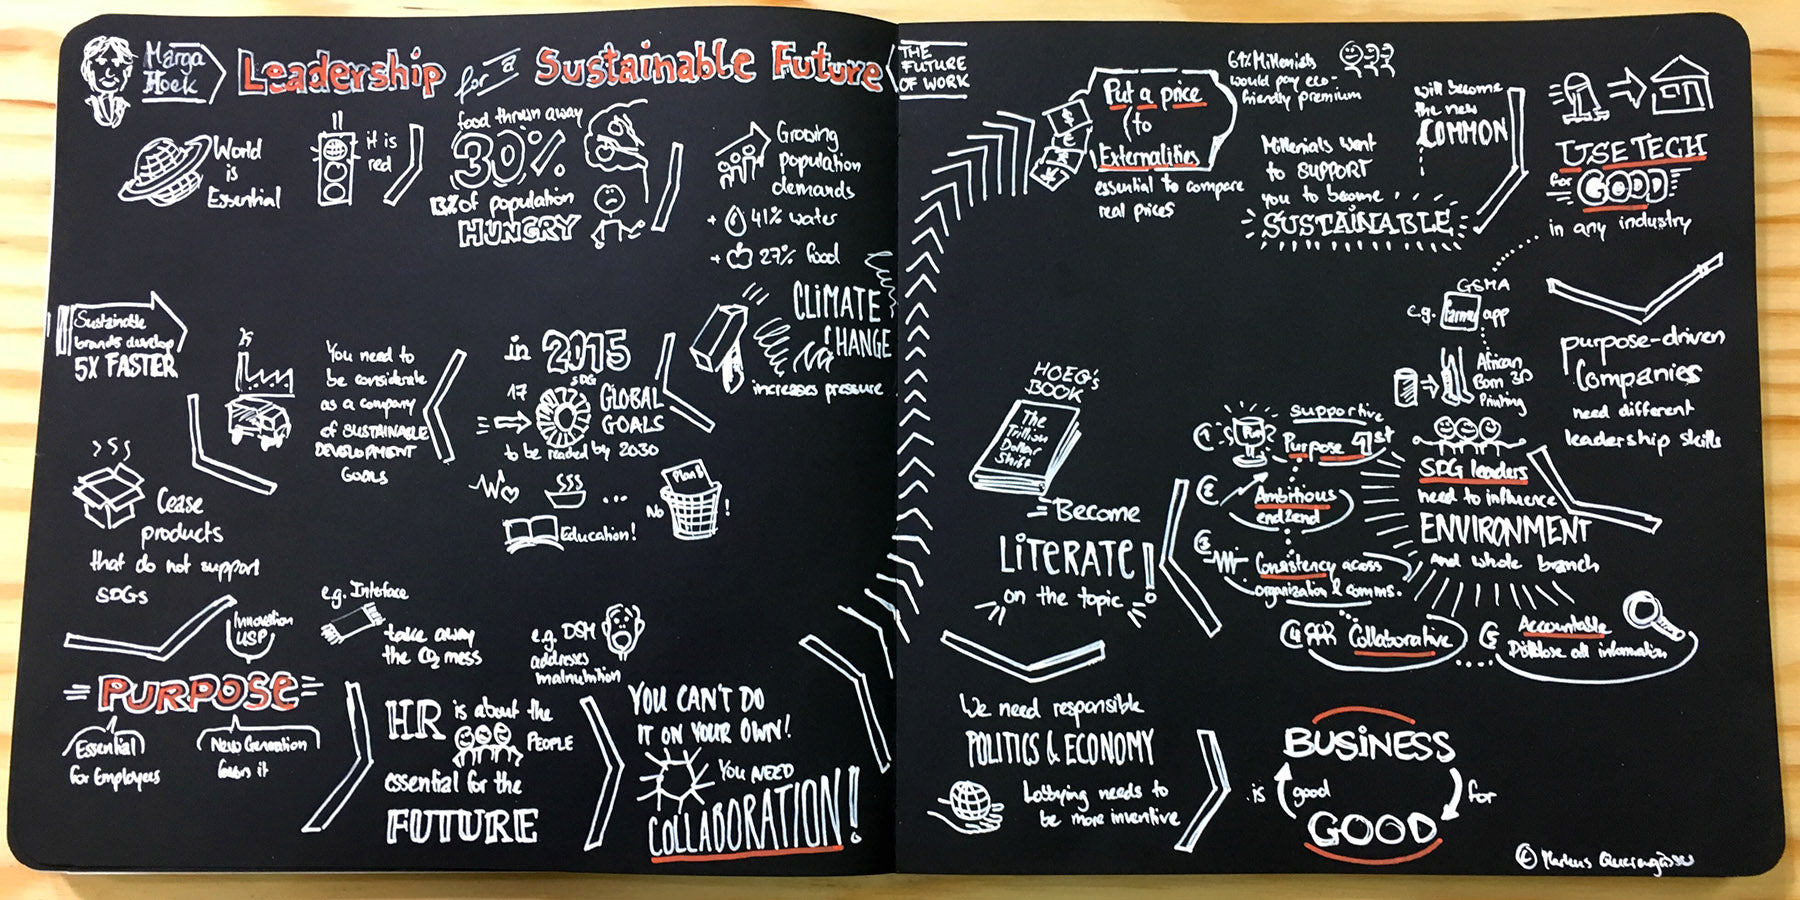 Marga
Hoek
Leadership for a Sustainable Future
THE
FUTURE
OF WORK
World
is
Essential
It is
red
food thrown away
30%
13% of population
HUNGRY
Growing
population
demands
+ 41% water
+ 27% food
CLIMATE
CHANGE
increases pressure
in 2015
17 SDG
GLOBAL
GOALS
to be reached by 2030
Education!
...
No
Plan B
!
You need to
be considerate
as a company
of SUSTAINABLE
DEVELOPMENT
GOALS
Sustainable
brands develop
5X FASTER
Cease
products
that do not support
SDGs
Innovation
USP
PURPOSE
Essential
for Employees
New Generation
favors it
e.g. Interface
take away
the CO2 mess
e.g. DSM
addresses
malnutrition
HR is about the
PEOPLE
essential for the
FUTURE
YOU CAN'T DO
IT ON YOUR OWN!
YOU NEED
COLLABORATION!
Put a price
(to
Externalities
essential to compare
real prices
$
€
¥
61% Millenials
would pay eco-
friendly premium
Millenials want
to SUPPORT
you to become
SUSTAINABLE
will become
the new
COMMON
USE TECH
for GOOD
in any industry
GSMA
e.g. farmer app
African
Born 3D
Printing
purpose-driven
Companies
need different
leadership skills
SDG leaders
need to influence
ENVIRONMENT
and whole branch
supportive
1
Purpose 1st
2
Ambitious
end2end
3
Consistency across
organization & comms.
4 Collaborative
5 Accountable
Disclose all information
HOEG's
BOOK
The
Trillion
Dollar
Shift
= Become
LITERATE!
on the topic
We need responsible
POLITICS & ECONOMY
Lobbying needs to
be more inventive
BUSINESS
is good for
GOOD
© Markus Queringässer